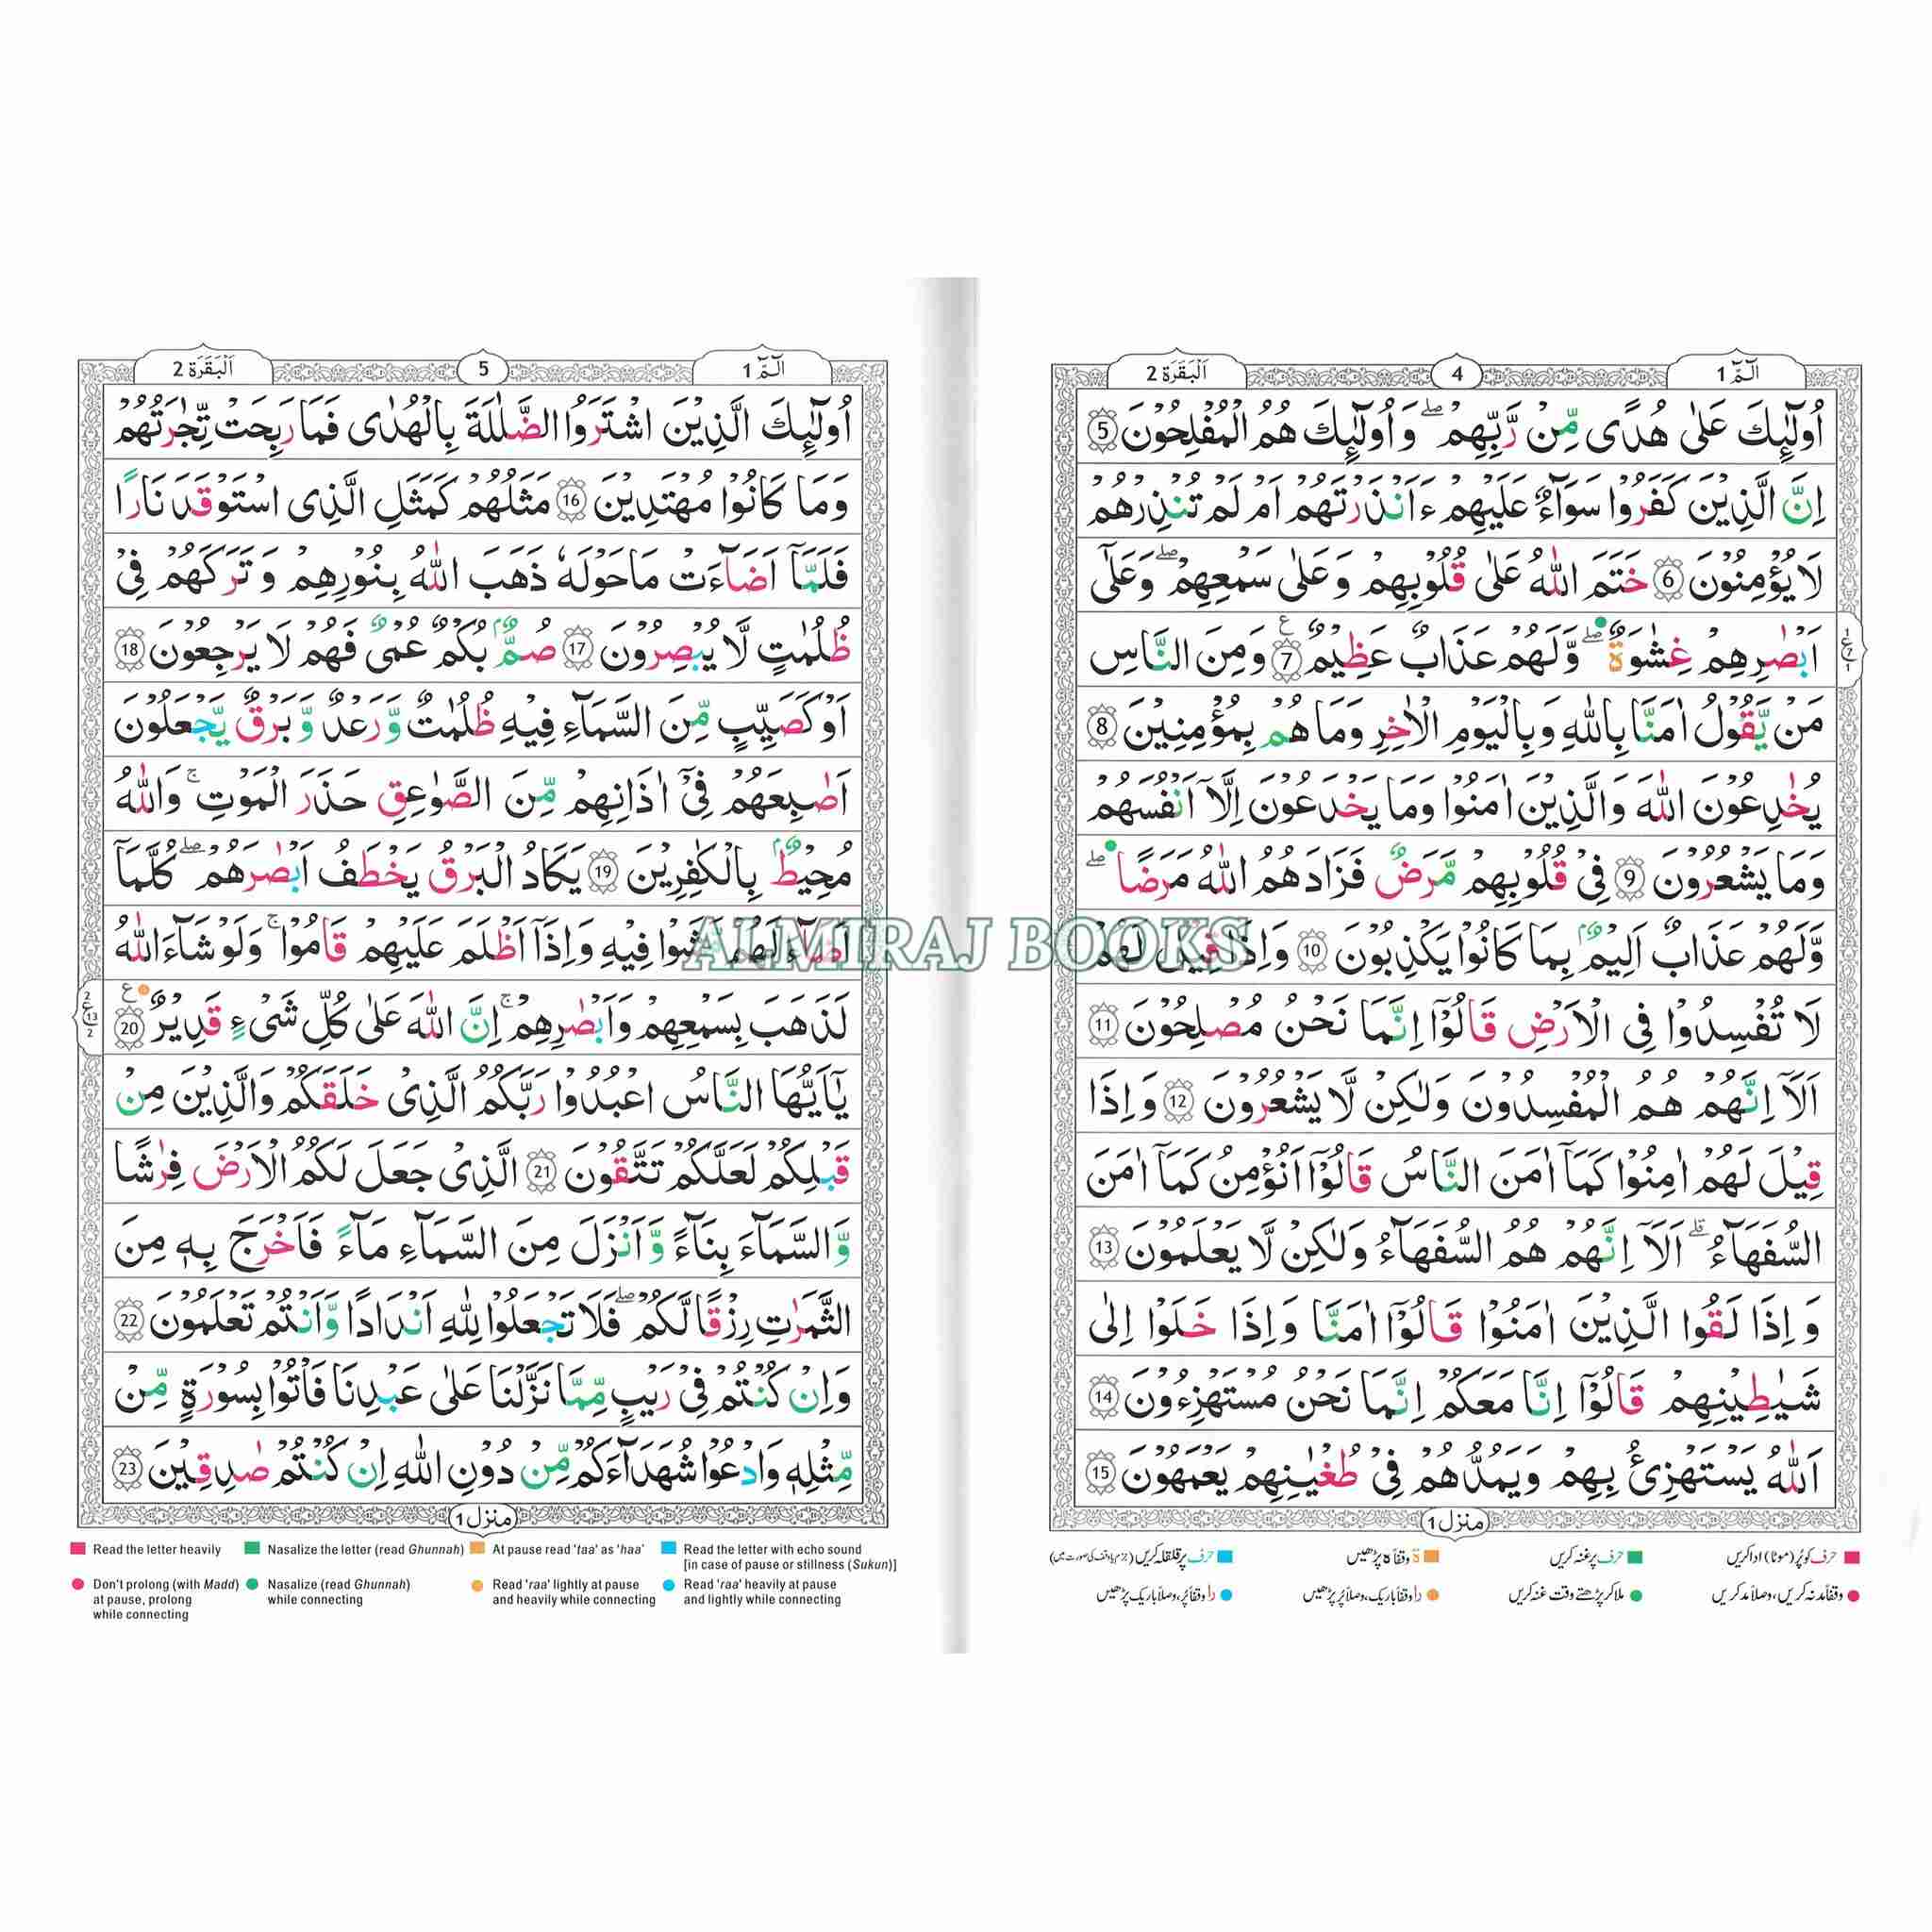 الٓمّٓ 1
4
اَلْبَقَرَة 2
اُولٰٓئِكَ عَلٰى هُدًى مِّنْ رَّبِّهِمْ ۖ وَاُولٰٓئِكَ هُمُ الْمُفْلِحُوْنَ 5
اِنَّ الَّذِيْنَ كَفَرُوْا سَوَآءٌ عَلَيْهِمْ ءَاَنْذَرْتَهُمْ اَمْ لَمْ تُنْذِرْهُمْ
لَا يُؤْمِنُوْنَ 6 خَتَمَ اللّٰهُ عَلٰى قُلُوْبِهِمْ وَعَلٰى سَمْعِهِمْ ۖ وَعَلٰٓى
اَبْصَارِهِمْ غِشَاوَةٌ ۖ وَّلَهُمْ عَذَابٌ عَظِيْمٌ 7 ع وَمِنَ النَّاسِ
مَنْ يَّقُوْلُ اٰمَنَّا بِاللّٰهِ وَبِالْيَوْمِ الْاٰخِرِ وَمَا هُمْ بِمُؤْمِنِيْنَ 8
يُخٰدِعُوْنَ اللّٰهَ وَالَّذِيْنَ اٰمَنُوْا وَمَا يَخْدَعُوْنَ اِلَّآ اَنْفُسَهُمْ
وَمَا يَشْعُرُوْنَ 9 فِيْ قُلُوْبِهِمْ مَّرَضٌ فَزَادَهُمُ اللّٰهُ مَرَضًا ۖ
وَّلَهُمْ عَذَابٌ اَلِيْمٌ بِمَا كَانُوْا يَكْذِبُوْنَ 10 وَاِذَا قِيْلَ لَهُمْ
لَا تُفْسِدُوْا فِى الْاَرْضِ قَالُوْٓا اِنَّمَا نَحْنُ مُصْلِحُوْنَ 11
اَلَآ اِنَّهُمْ هُمُ الْمُفْسِدُوْنَ وَلٰكِنْ لَّا يَشْعُرُوْنَ 12 وَاِذَا
قِيْلَ لَهُمْ اٰمِنُوْا كَمَآ اٰمَنَ النَّاسُ قَالُوْٓا اَنُؤْمِنُ كَمَآ اٰمَنَ
السُّفَهَآءُ ۗ اَلَآ اِنَّهُمْ هُمُ السُّفَهَآءُ وَلٰكِنْ لَّا يَعْلَمُوْنَ 13
وَاِذَا لَقُوا الَّذِيْنَ اٰمَنُوْا قَالُوْٓا اٰمَنَّا وَاِذَا خَلَوْا اِلٰى
شَيٰطِيْنِهِمْ قَالُوْٓا اِنَّا مَعَكُمْ اِنَّمَا نَحْنُ مُسْتَهْزِءُوْنَ 14
اَللّٰهُ يَسْتَهْزِئُ بِهِمْ وَيَمُدُّهُمْ فِيْ طُغْيٰنِهِمْ يَعْمَهُوْنَ 15
منزل 1
حرف کو پُر (موٹا) ادا کریں
حرف پر غنہ کریں
ة وقفاً ہ پڑھیں
حرف پر قلقلہ کریں (جزم یا وقف کی صورت میں)
وقفاً مد نہ کریں، وصلاً مد کریں
ملا کر پڑھتے وقت غنہ کریں
را وقفاً باریک، وصلاً پُر پڑھیں
را وقفاً پُر، وصلاً باریک پڑھیں
الٓمّٓ 1
5
اَلْبَقَرَة 2
اُولٰٓئِكَ الَّذِيْنَ اشْتَرَوُا الضَّلٰلَةَ بِالْهُدٰى فَمَا رَبِحَتْ تِّجَارَتُهُمْ
وَمَا كَانُوْا مُهْتَدِيْنَ 16 مَثَلُهُمْ كَمَثَلِ الَّذِى اسْتَوْقَدَ نَارًا
فَلَمَّآ اَضَآءَتْ مَا حَوْلَهٗ ذَهَبَ اللّٰهُ بِنُوْرِهِمْ وَتَرَكَهُمْ فِيْ
ظُلُمٰتٍ لَّا يُبْصِرُوْنَ 17 صُمٌّ بُكْمٌ عُمْيٌ فَهُمْ لَا يَرْجِعُوْنَ 18
اَوْ كَصَيِّبٍ مِّنَ السَّمَآءِ فِيْهِ ظُلُمٰتٌ وَّرَعْدٌ وَّبَرْقٌ يَّجْعَلُوْنَ
اَصَابِعَهُمْ فِيْٓ اٰذَانِهِمْ مِّنَ الصَّوَاعِقِ حَذَرَ الْمَوْتِ ۚ وَاللّٰهُ
مُحِيْطٌ بِالْكٰفِرِيْنَ 19 يَكَادُ الْبَرْقُ يَخْطَفُ اَبْصَارَهُمْ ۖ كُلَّمَآ
اَضَآءَ لَهُمْ مَّشَوْا فِيْهِ وَاِذَآ اَظْلَمَ عَلَيْهِمْ قَامُوْا ۚ وَلَوْ شَآءَ اللّٰهُ
لَذَهَبَ بِسَمْعِهِمْ وَاَبْصَارِهِمْ ۚ اِنَّ اللّٰهَ عَلٰى كُلِّ شَيْءٍ قَدِيْرٌ 20 ع
يٰٓاَيُّهَا النَّاسُ اعْبُدُوْا رَبَّكُمُ الَّذِيْ خَلَقَكُمْ وَالَّذِيْنَ مِنْ
قَبْلِكُمْ لَعَلَّكُمْ تَتَّقُوْنَ 21 الَّذِيْ جَعَلَ لَكُمُ الْاَرْضَ فِرَاشًا
وَّالسَّمَآءَ بِنَآءً وَّاَنْزَلَ مِنَ السَّمَآءِ مَآءً فَاَخْرَجَ بِهٖ مِنَ
الثَّمَرٰتِ رِزْقًا لَّكُمْ ۖ فَلَا تَجْعَلُوْا لِلّٰهِ اَنْدَادًا وَّاَنْتُمْ تَعْلَمُوْنَ 22
وَاِنْ كُنْتُمْ فِيْ رَيْبٍ مِّمَّا نَزَّلْنَا عَلٰى عَبْدِنَا فَاْتُوْا بِسُوْرَةٍ مِّنْ
مِّثْلِهٖ وَادْعُوْا شُهَدَآءَكُمْ مِّنْ دُوْنِ اللّٰهِ اِنْ كُنْتُمْ صٰدِقِيْنَ 23
منزل 1
Read the letter heavily
Nasalize the letter (read Ghunnah)
At pause read 'taa' as 'haa'
Read the letter with echo sound
[in case of pause or stillness (Sukun)]
Don't prolong (with Madd)
at pause, prolong
while connecting
Nasalize (read Ghunnah)
while connecting
Read 'raa' lightly at pause
and heavily while connecting
Read 'raa' heavily at pause
and lightly while connecting
ALMIRAJ BOOKS